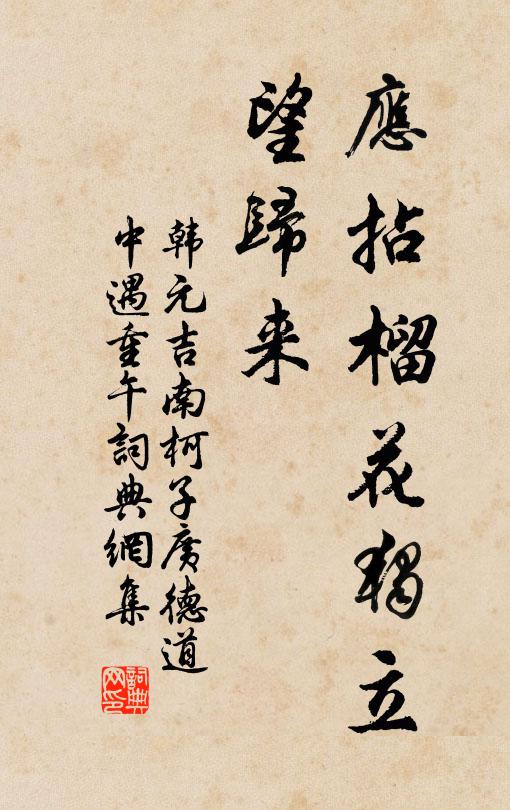 應拈榴花独立
望歸来
韩元吉南柯子廣德道
中遇重午詞典網集
詞典网印